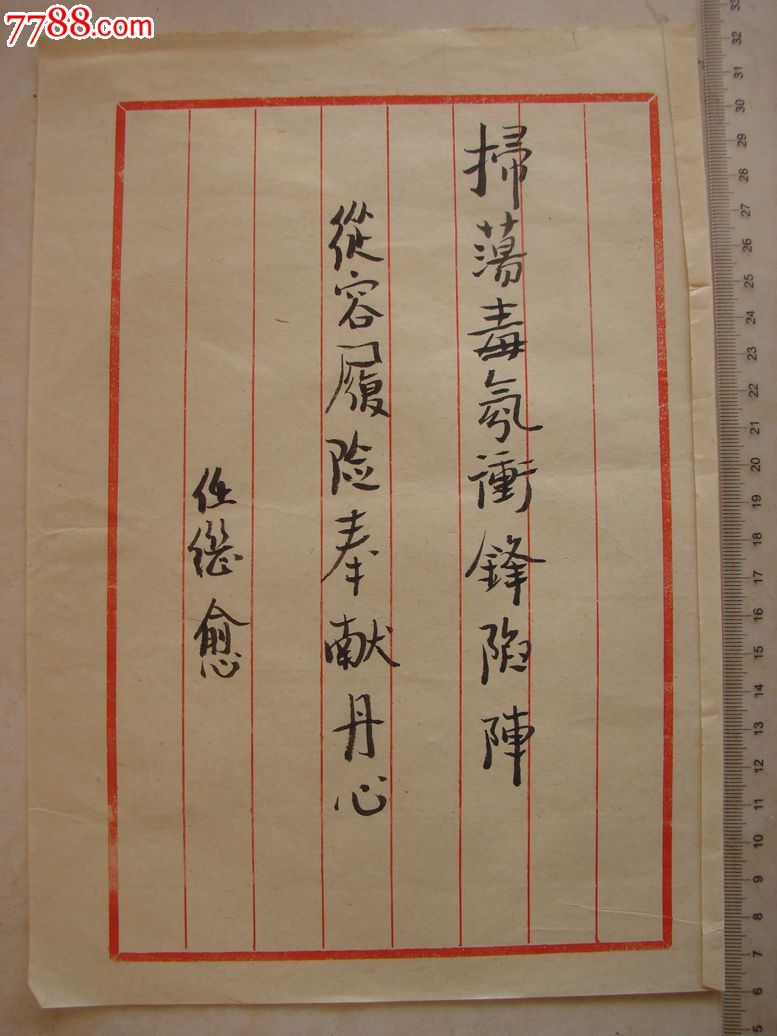 7788.com
掃蕩毒氛衝鋒陷陣
從容履险奉献丹心
任继愈
33
32
31
30
29
28
27
26
25
24
23
22
21
20
19
18
17
16
15
14
13
12
11
10
9
8
7
6
5